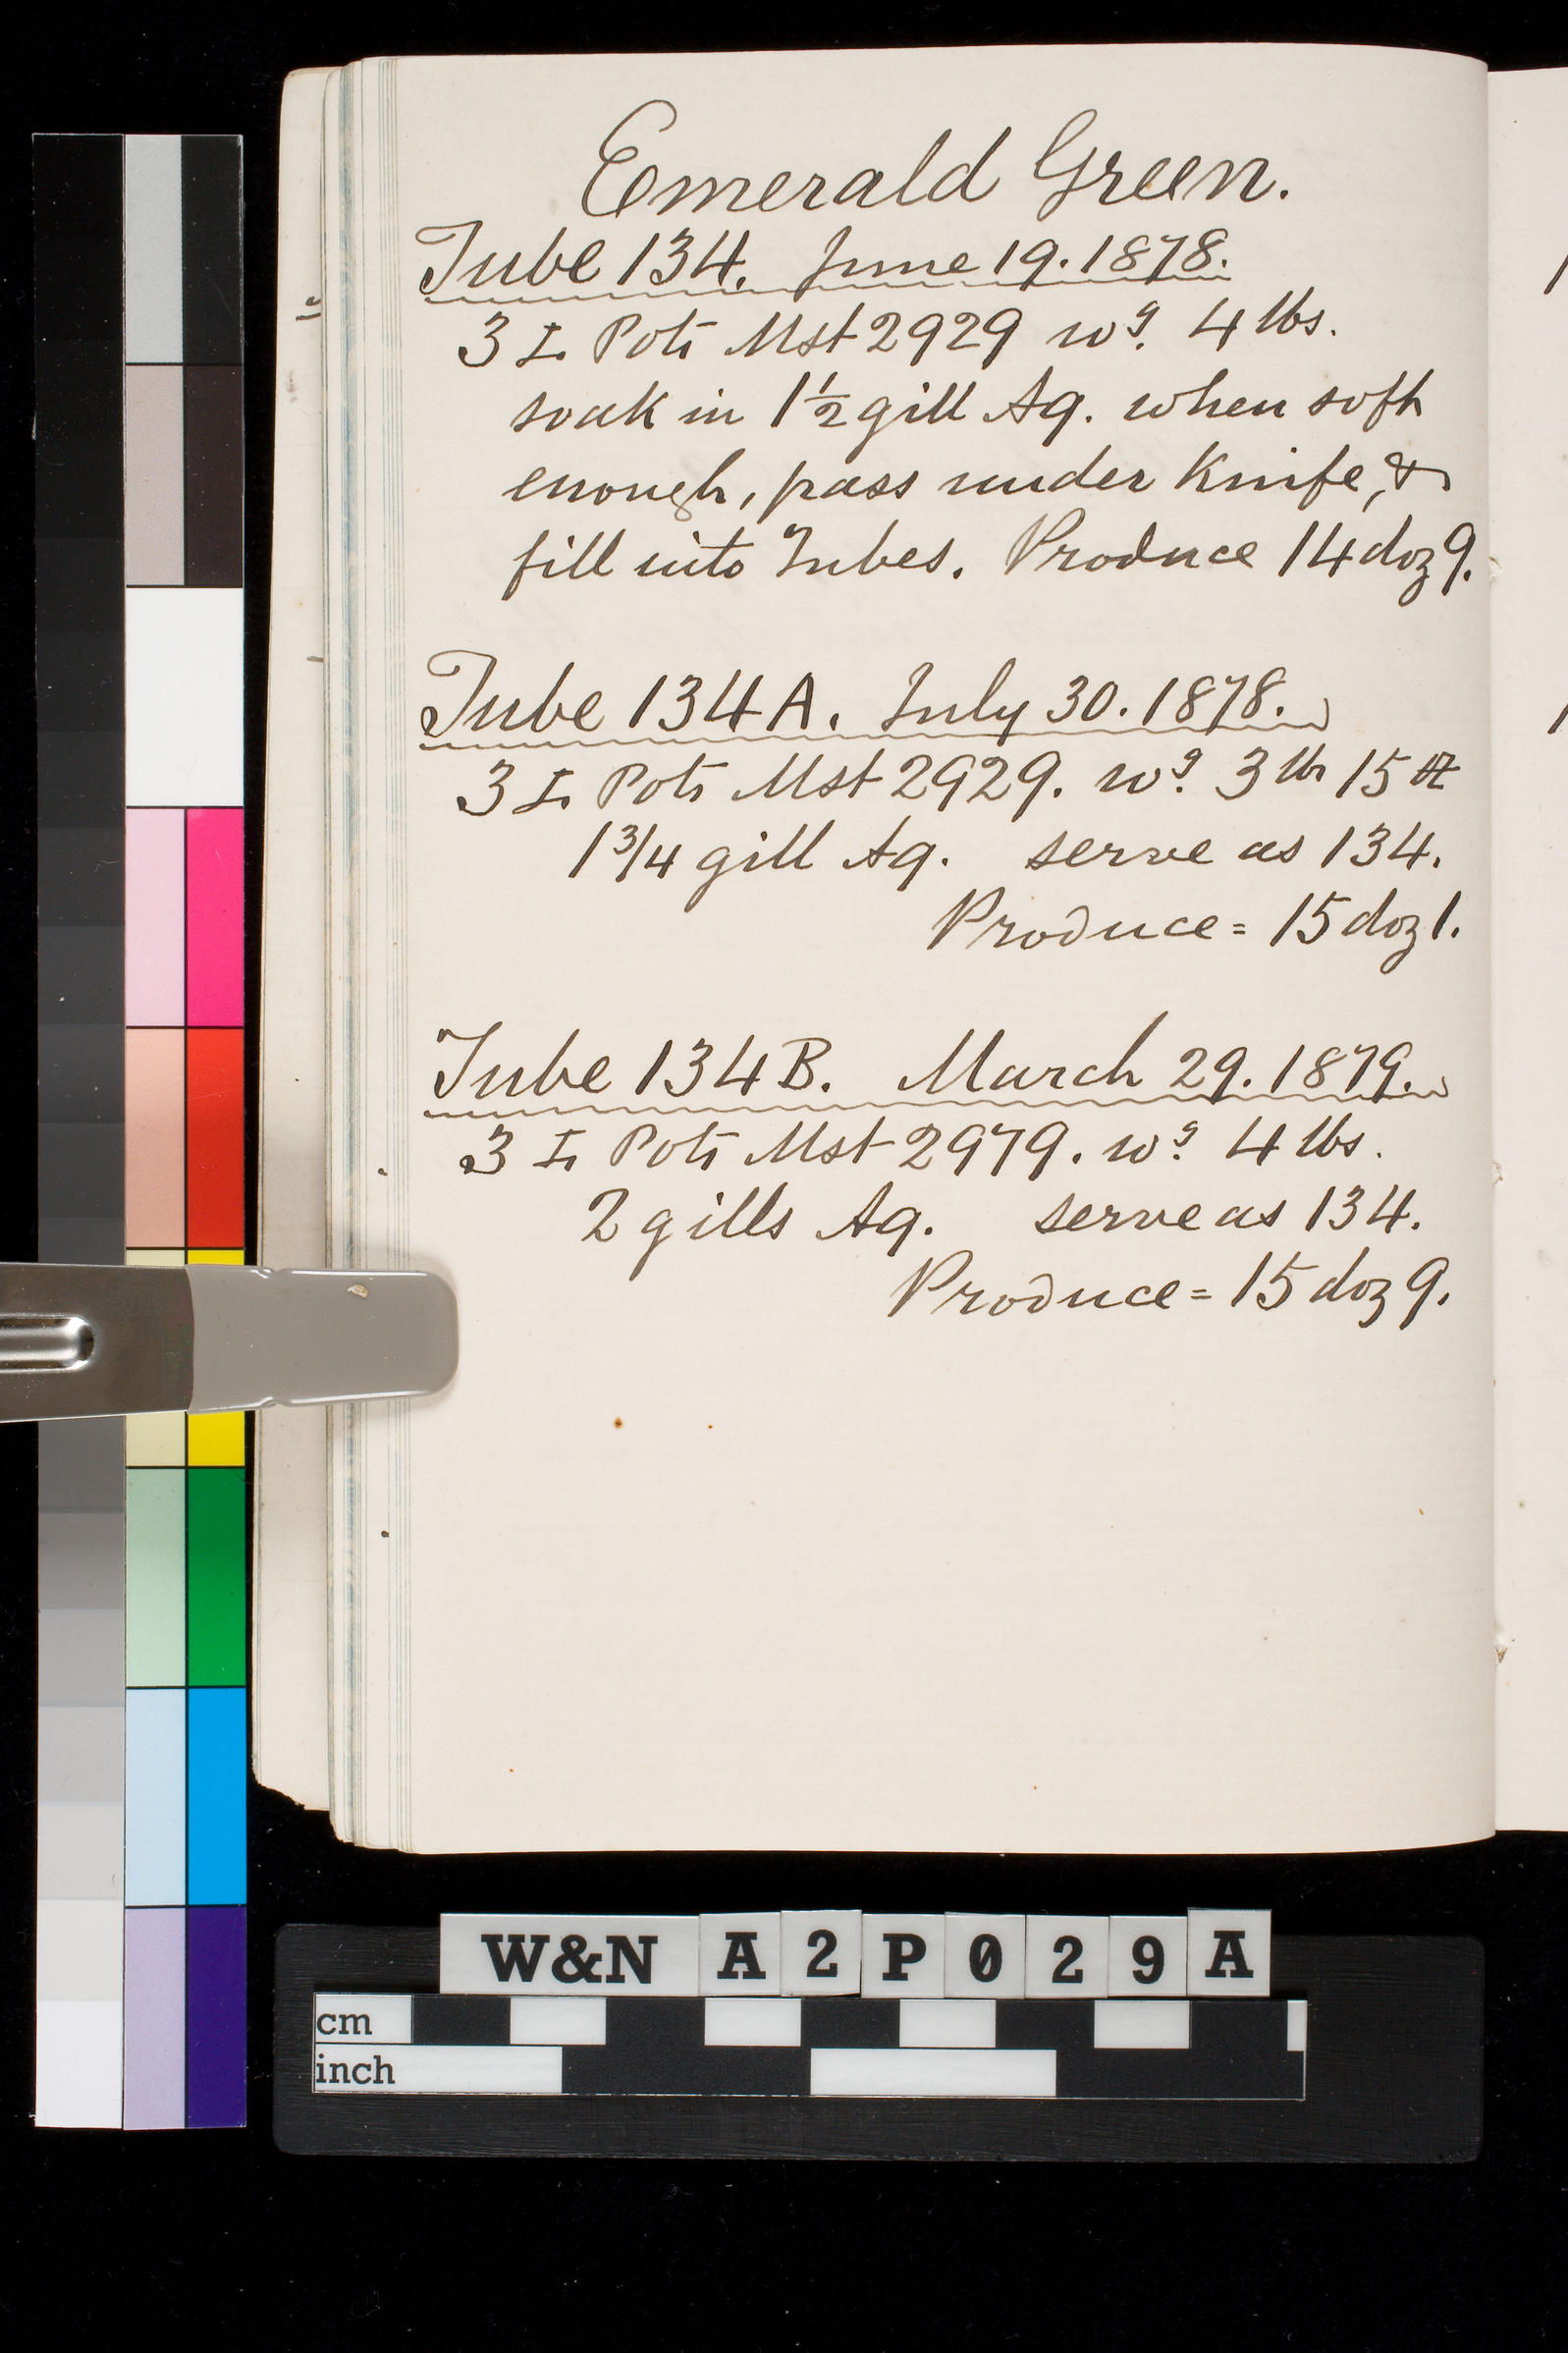 Emerald Green.
Tube 134. June 19. 1878.
3 I. Pots Mst 2929 wg. 4 lbs.
soak in 1½ gill Aq. when soft
enough, pass under Knife, &
fill into Tubes. Produce 14 doz 9.
Tube 134 A. July 30. 1878.
3 I. Pots Mst 2929. wg. 3 lb 15 oz
1 3/4 gill Aq. serve as 134.
Produce = 15 doz 1.
Tube 134 B. March 29. 1879.
3 I. Pots Mst 2979. wg. 4 lbs.
2 gills Aq. serve as 134.
Produce = 15 doz 9.
W&N A2P029A
cm
inch